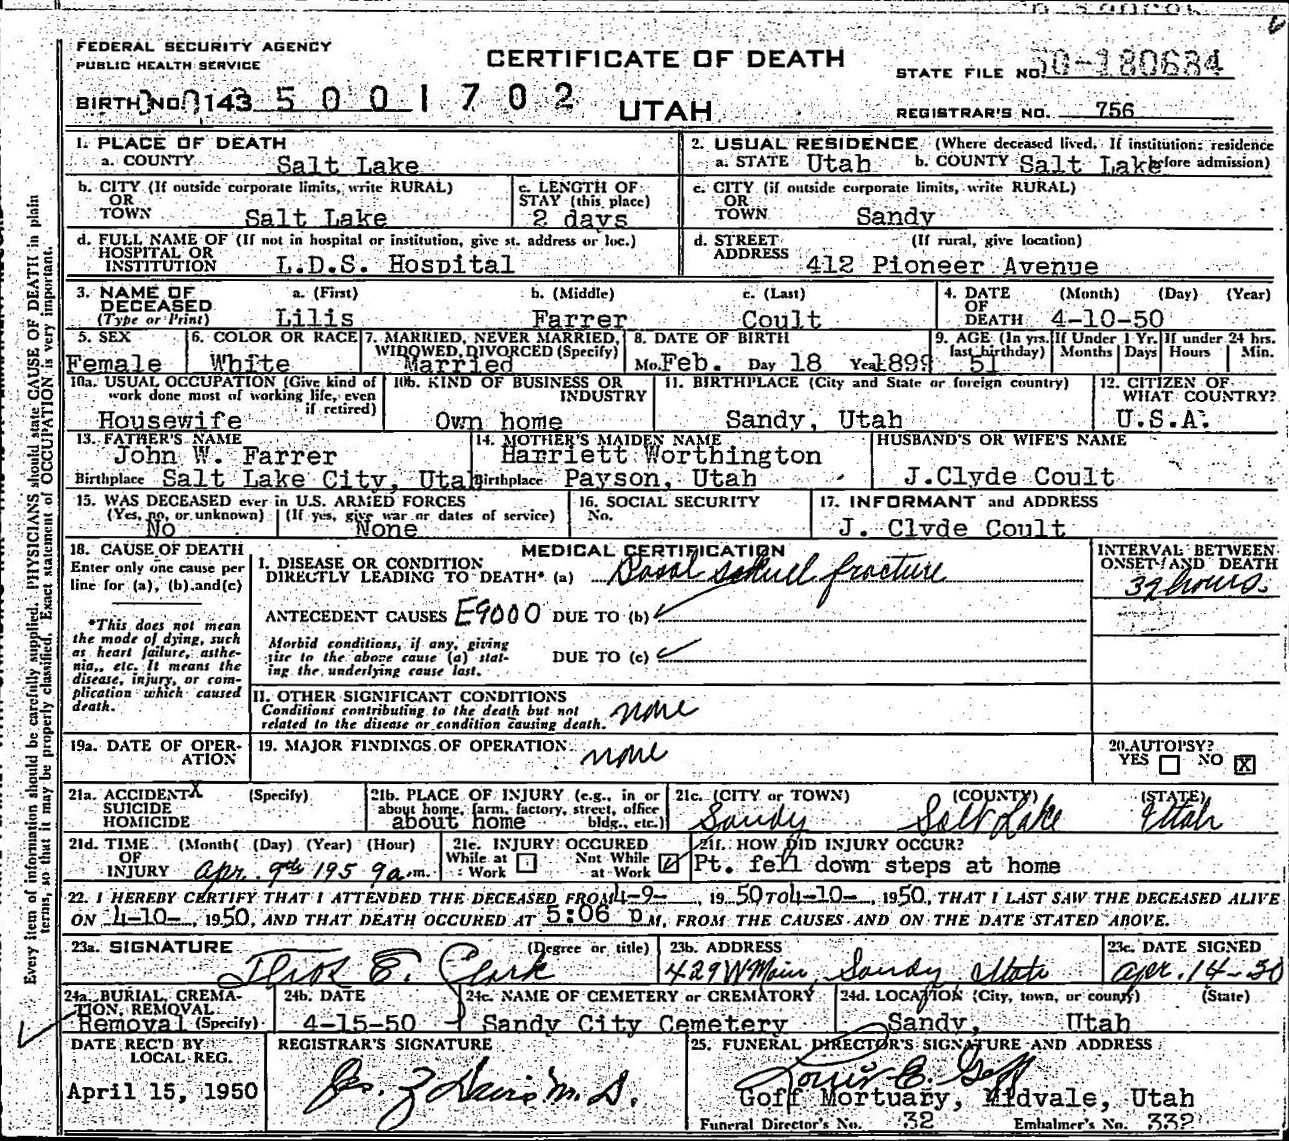 FEDERAL SECURITY AGENCY
PUBLIC HEALTH SERVICE
CERTIFICATE OF DEATH
STATE FILE NO. 50-180684
BIRTH NO. 143 5 0 0 1 7 0 2
UTAH
REGISTRAR'S NO. 756
1. PLACE OF DEATH
a. COUNTY Salt Lake
2. USUAL RESIDENCE (Where deceased lived. If institution: residence before admission)
a. STATE Utah b. COUNTY Salt Lake
b. CITY (If outside corporate limits, write RURAL)
OR
TOWN Salt Lake
c. LENGTH OF
STAY (this place)
2 days
c. CITY (if outside corporate limits, write RURAL)
OR
TOWN Sandy
d. FULL NAME OF (If not in hospital or institution, give st. address or loc.)
HOSPITAL OR
INSTITUTION L.D.S. Hospital
d. STREET (If rural, give location)
ADDRESS 412 Pioneer Avenue
3. NAME OF
DECEASED
(Type or Print)
a. (First) b. (Middle) c. (Last)
Lilis Farrer Coult
4. DATE (Month) (Day) (Year)
OF
DEATH 4-10-50
5. SEX
Female
6. COLOR OR RACE
White
7. MARRIED, NEVER MARRIED,
WIDOWED, DIVORCED (Specify)
Married
8. DATE OF BIRTH
Mo. Feb. Day 18 Year 1899
9. AGE (In yrs.
last birthday)
51
If Under 1 Yr.
Months Days
If under 24 hrs.
Hours Min.
10a. USUAL OCCUPATION (Give kind of
work done most of working life, even
if retired)
Housewife
10b. KIND OF BUSINESS OR
INDUSTRY
Own home
11. BIRTHPLACE (City and State or foreign country)
Sandy, Utah
12. CITIZEN OF
WHAT COUNTRY?
U.S.A.
13. FATHER'S NAME
John W. Farrer
Birthplace Salt Lake City, Utah
14. MOTHER'S MAIDEN NAME
Harriett Worthington
Birthplace Payson, Utah
HUSBAND'S OR WIFE'S NAME
J.Clyde Coult
15. WAS DECEASED ever in U.S. ARMED FORCES
(Yes, no, or unknown) (If yes, give war or dates of service)
No None
16. SOCIAL SECURITY
No.
17. INFORMANT and ADDRESS
J. Clyde Coult
18. CAUSE OF DEATH
Enter only one cause per
line for (a), (b).and(c)
*This does not mean
the mode of dying, such
as heart failure, asthe-
nia,, etc. It means the
disease, injury, or com-
plication which caused
death.
MEDICAL CERTIFICATION
I. DISEASE OR CONDITION
DIRECTLY LEADING TO DEATH* (a) Basal skull fracture
ANTECEDENT CAUSES E9000 DUE TO (b)
Morbid conditions, if any, giving
rise to the above cause (a) stat-
ing the underlying cause last.
DUE TO (c)
INTERVAL BETWEEN
ONSET AND DEATH
32 hours.
II. OTHER SIGNIFICANT CONDITIONS
Conditions contributing to the death but not
related to the disease or condition causing death. none
19a. DATE OF OPER-
ATION
19. MAJOR FINDINGS OF OPERATION
none
20. AUTOPSY?
YES NO X
21a. ACCIDENT X (Specify)
SUICIDE
HOMICIDE
21b. PLACE OF INJURY (e.g., in or
about home, farm, factory, street, office
bldg., etc.)
about home
21c. (CITY or TOWN) (COUNTY) (STATE)
Sandy Salt Lake Utah
21d. TIME (Month) (Day) (Year) (Hour)
OF
INJURY Apr. 9th 195 9a.m.
21e. INJURY OCCURED
While at
Work
Not While
at Work
21f. HOW DID INJURY OCCUR?
Pt. fell down steps at home
22. I HEREBY CERTIFY THAT I ATTENDED THE DECEASED FROM 4-9-, 1950 TO 4-10-, 1950, THAT I LAST SAW THE DECEASED ALIVE
ON 4-10-, 1950, AND THAT DEATH OCCURED AT 5:06 p M, FROM THE CAUSES AND ON THE DATE STATED ABOVE.
23a. SIGNATURE (Degree or title)
E. Clark
23b. ADDRESS
429 W Main, Sandy Utah
23c. DATE SIGNED
Apr. 14-50
24a. BURIAL, CREMA-
TION, REMOVAL
Removal (Specify)
24b. DATE
4-15-50
24c. NAME OF CEMETERY or CREMATORY
Sandy City Cemetery
24d. LOCATION (City, town, or county) (State)
Sandy, Utah
DATE REC'D BY
LOCAL REG.
April 15, 1950
REGISTRAR'S SIGNATURE
M.D.
25. FUNERAL DIRECTOR'S SIGNATURE AND ADDRESS
E. Goff
Goff Mortuary, Midvale, Utah
Funeral Director's No. 32 Embalmer's No. 332
Every item of information should be carefully supplied. PHYSICIANS should state CAUSE OF DEATH in plain
terms, so that it may be properly classified. Exact statement of OCCUPATION is very important.